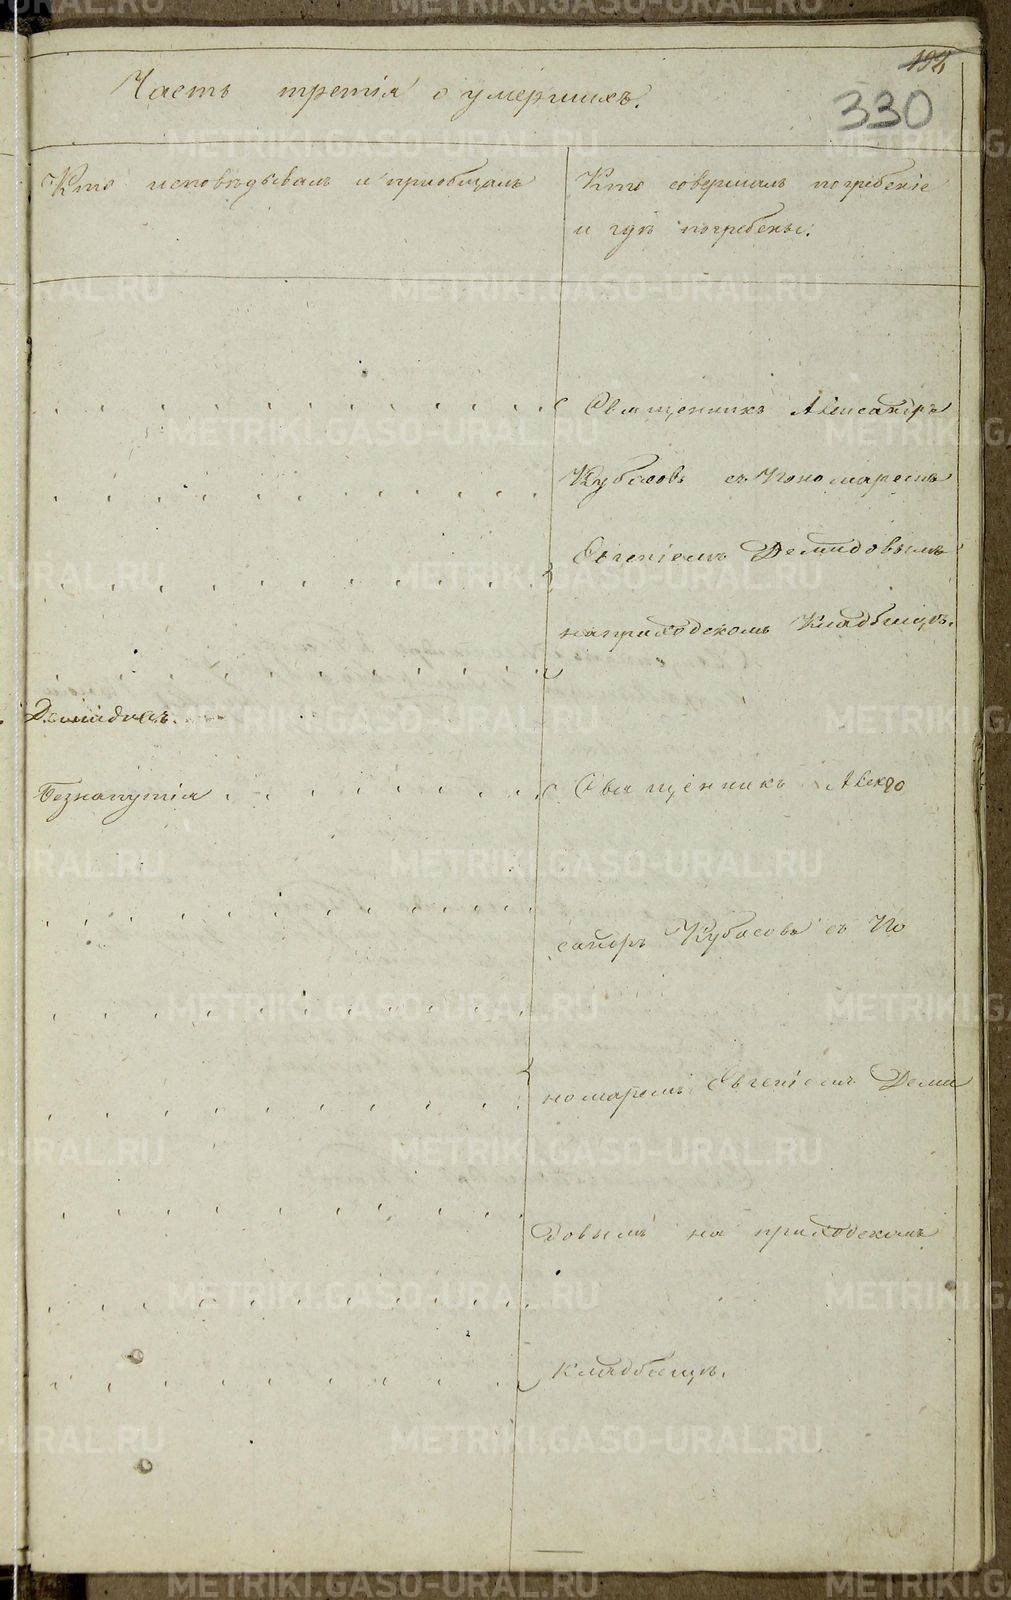 192
330
Часть третія о умершихъ.
Кто исповѣдывалъ и пріобщалъ
Кто совершалъ погребеніе
и гдѣ погребены.
Священникъ Александръ
Кубасовъ съ Пономаремъ
Евгеніемъ Демидовымъ
на приходскомъ Кладбищѣ.
Безнапутія
Священникъ Алек
сандръ Кубасовъ съ По
номаремъ Евгеніемъ Деми
довымъ на приходскомъ
кладбищѣ.
METRIKI.GASO-URAL.RU